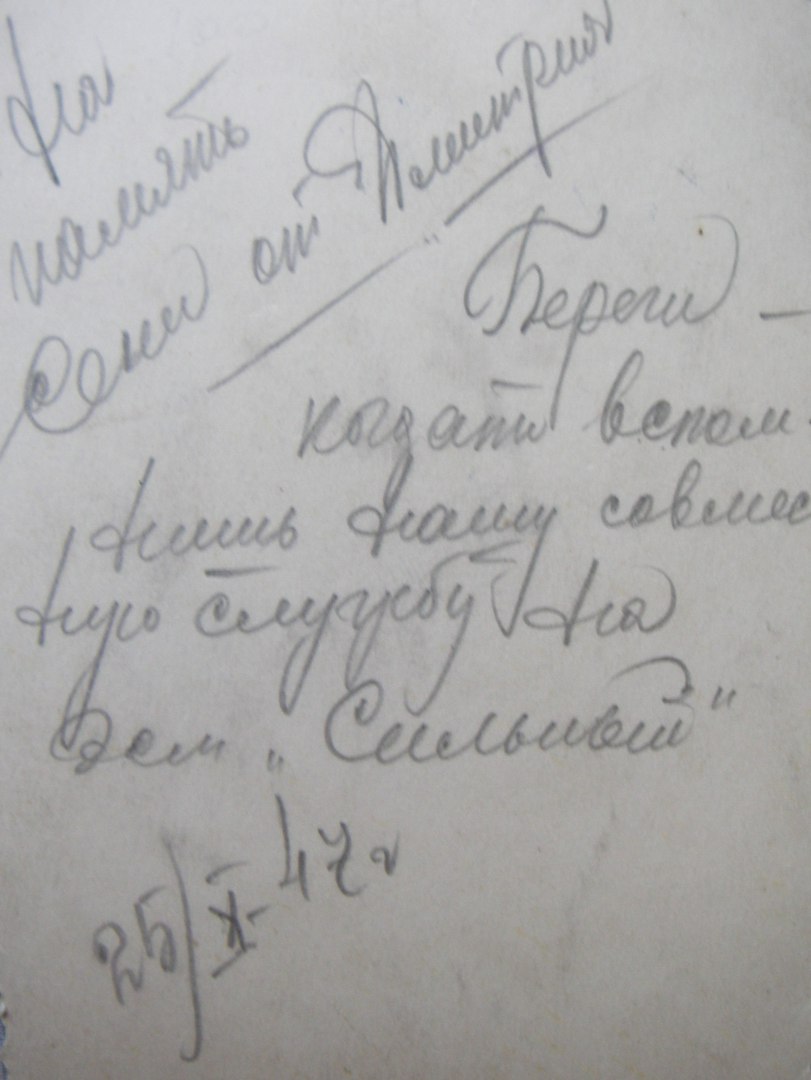 На
память
Сени от Дмитрия
Береги –
когда ти вспом-
нишь нашу совмес
ную службу на
эсм „Сильный"
25/X-47г